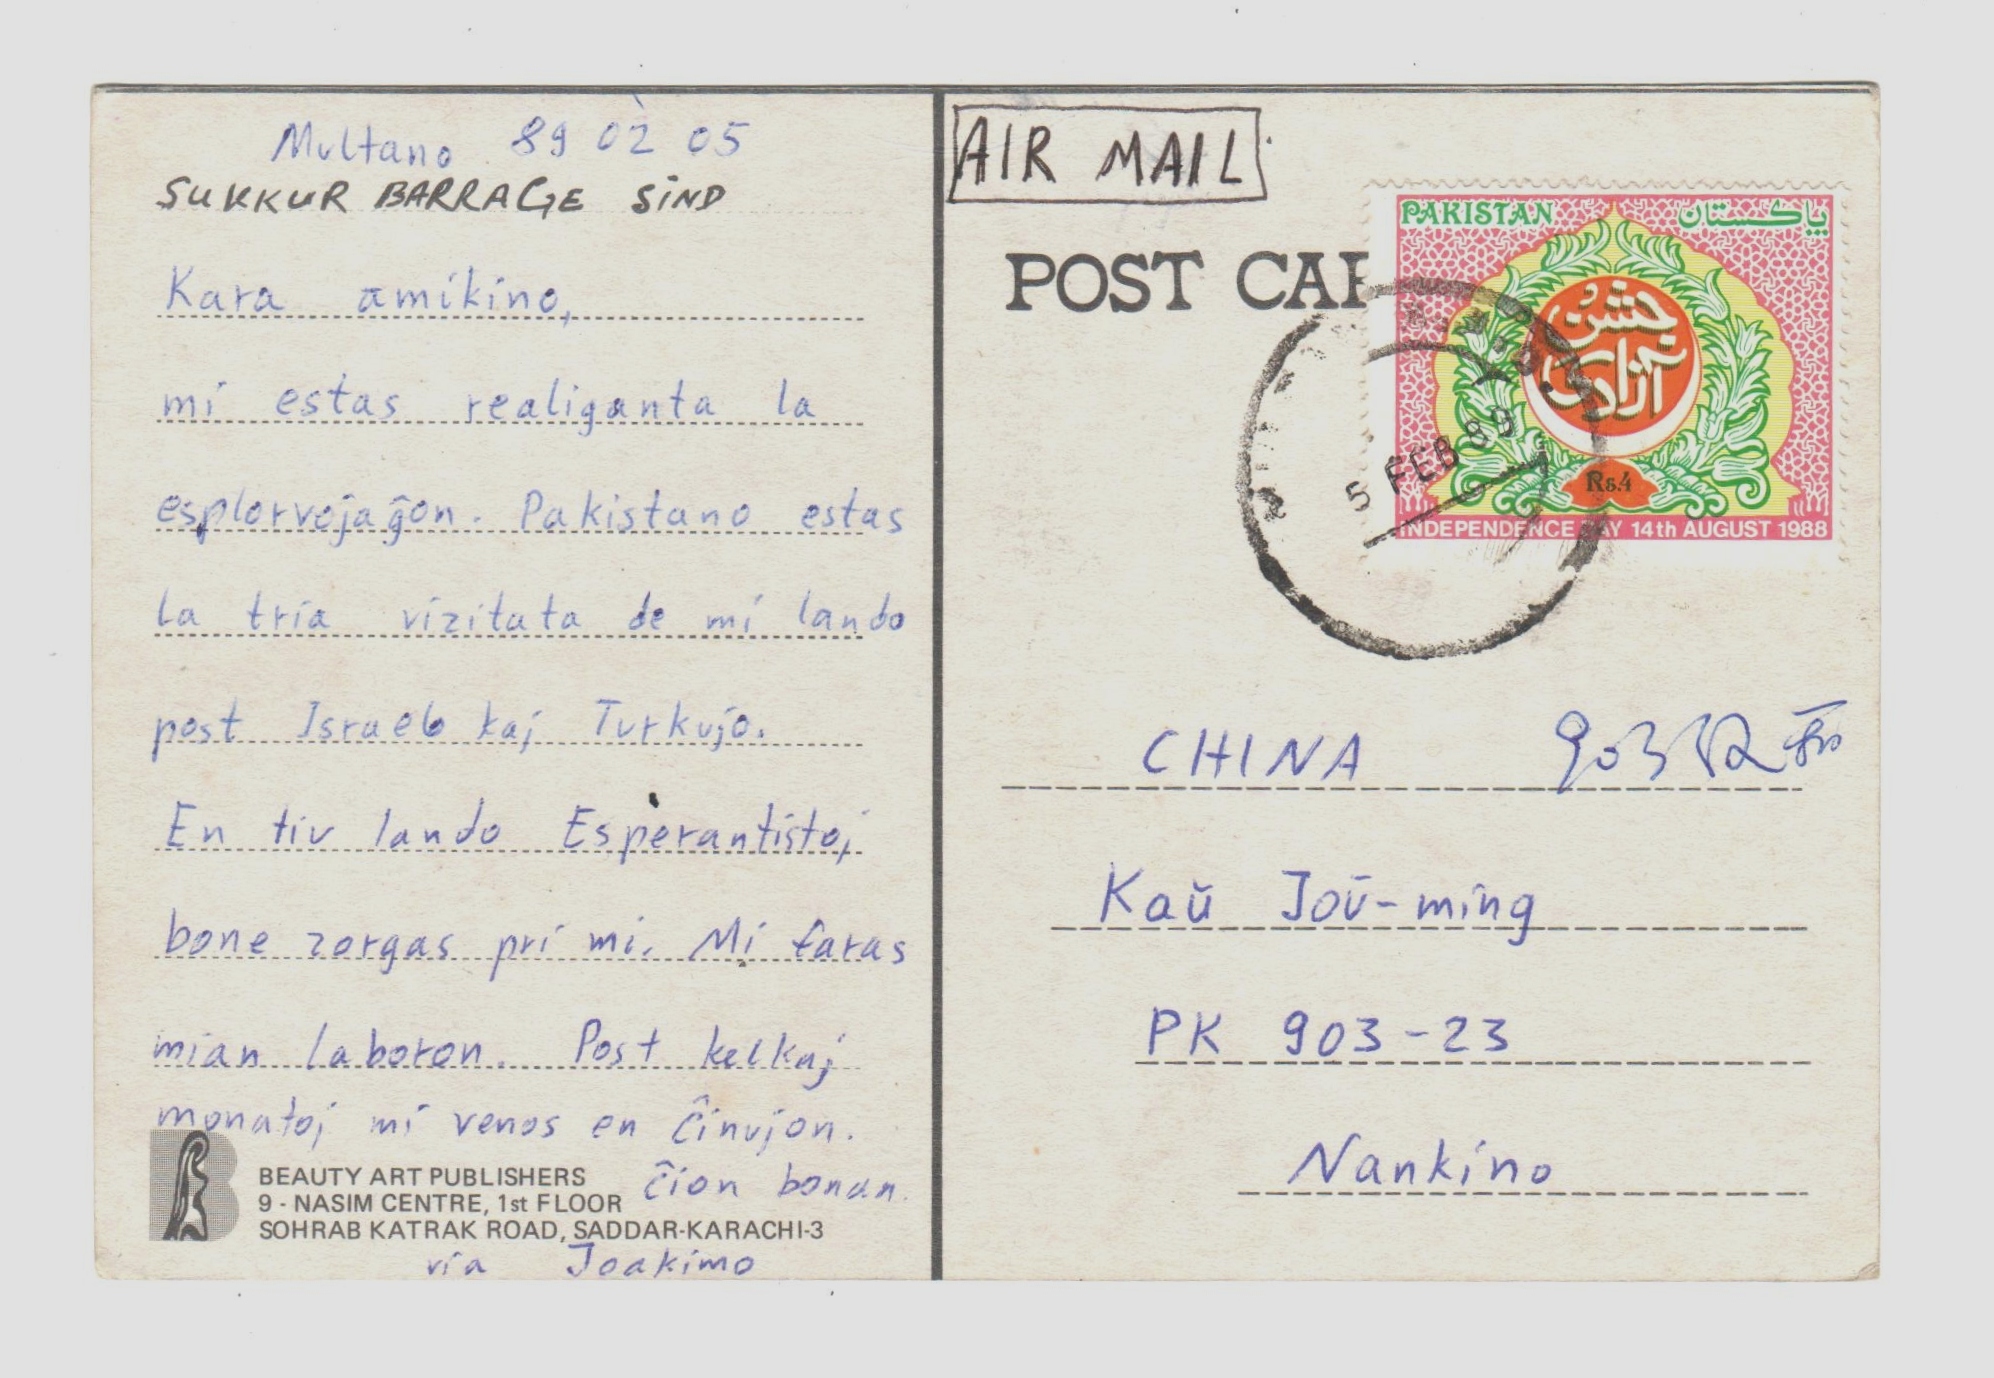 Multano 89 02 05
SUKKUR BARRAGE SIND
Kara amikino,
mi estas realiganta la
esplorvojaĝon. Pakistano estas
la tria vizitata de mi lando
post Israelo kaj Turkujo.
En tiu lando Esperantistoj
bone zorgas pri mi. Mi faras
mian laboron. Post kelkaj
monatoj mi venos en Ĉinujon.
ĉion bonan.
BEAUTY ART PUBLISHERS
9 - NASIM CENTRE, 1st FLOOR
SOHRAB KATRAK ROAD, SADDAR-KARACHI-3
via Joakimo
AIR MAIL
POST CAR
PAKISTAN پاکستان
جشن
آزادی
Rs.4
INDEPENDENCE DAY 14th AUGUST 1988
5 FEB 89
CHINA 903
Kaŭ Joŭ-ming
PK 903-23
Nankino